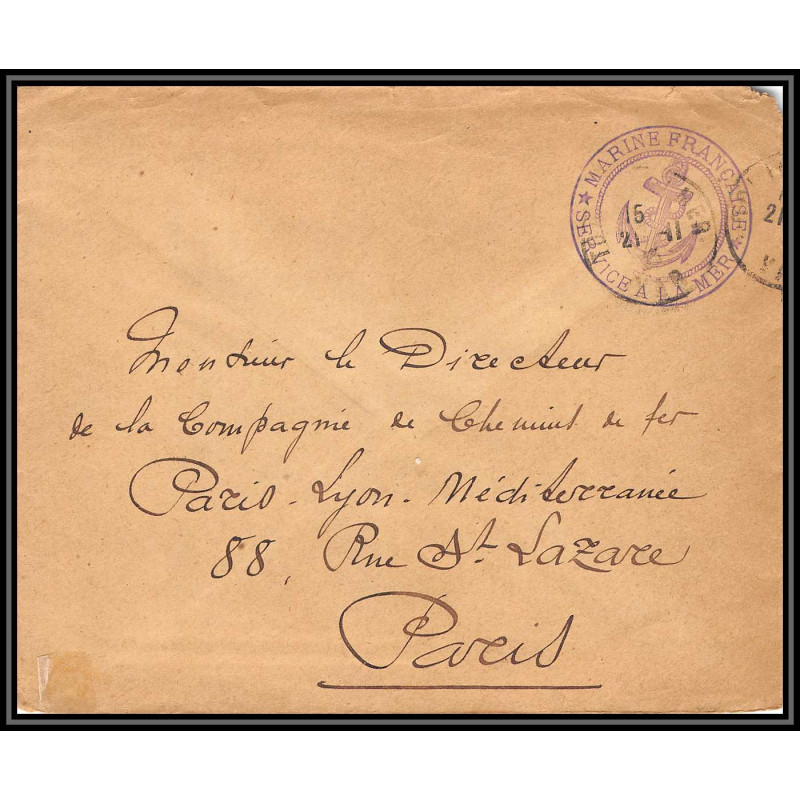 ★ MARINE FRANÇAISE ★
SERVICE A LA MER
15
21 11
21
Monsieur le Directeur
de la Compagnie de Chemins de fer
Paris-Lyon-Méditerranée
88, Rue St Lazare
Paris